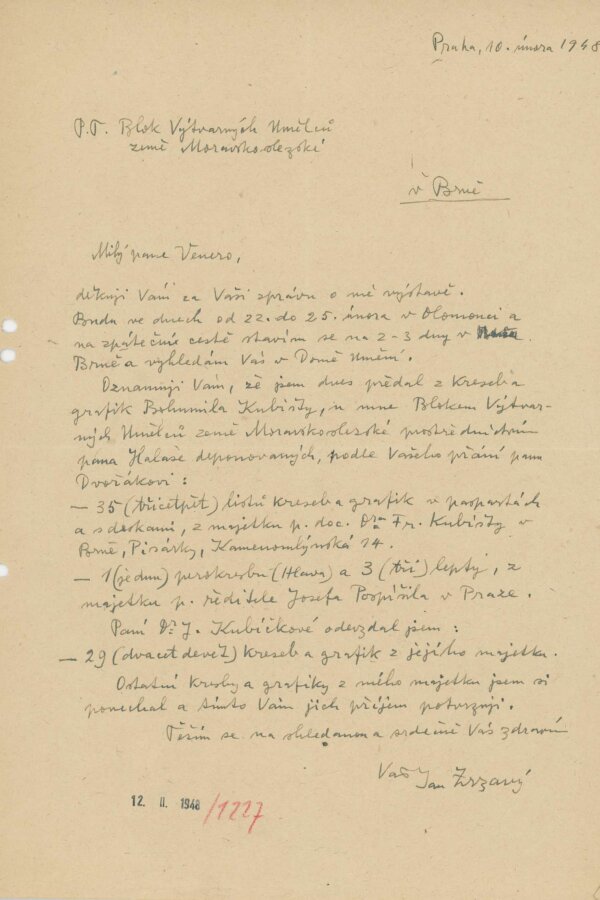 Praha, 10. února 1948
P.T. Blok Výtvarných Umělců
země Moravskoslezské
v Brně
Milý pane Venero,
děkuji Vám za Vaši zprávu o mé výstavě.
Budu ve dnech od 22. do 25. února v Olomouci a
na zpáteční cestě stavím se na 2-3 dny v
Brně a vyhledám Vás v Domě Umění.
Oznamuji Vám, že jsem dnes předal z kreseb a
grafik Bohumila Kubišty, u mne Blokem Výtvar-
ných Umělců země Moravskoslezské prostřednictvím
pana Halase deponovaných, podle Vašeho přání panu
Dvořákovi:
— 35 (třicetpět) listů kreseb a grafik v paspartách
a s deskami, z majetku p. doc. Dra Fr. Kubišty v
Brně, Pisárky, Kamenomlýnská 14.
— 1 (jednu) perokresbu (Hlava) a 3 (tři) lepty, z
majetku p. ředitele Josefa Pospíšila v Praze.
Paní Dr J. Kubíčkové odevzdal jsem:
— 29 (dvacet devět) kreseb a grafik z jejího majetku.
Ostatní kresby a grafiky z mého majetku jsem si
ponechal a tímto Vám jich příjem potvrzuji.
Těším se na shledanou a srdečně Vás zdravím
Váš Jan Zrzavý
12. II. 1948 /1227